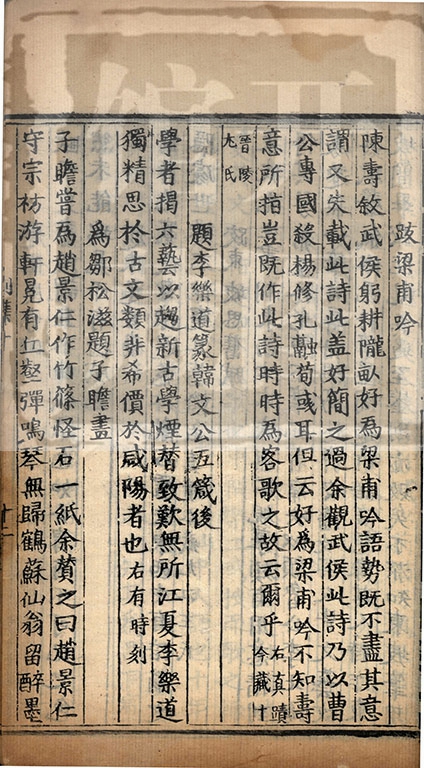 跋梁甫吟
陳壽敘武侯躬耕隴畝好為梁甫吟語勢既不盡其意
謂又失載此詩此蓋好簡之過余觀武侯此詩乃以曹
公專國殺楊修孔融荀彧耳但云好為梁甫吟不知壽
意所指豈既作此詩時時為客歌之故云爾乎右真蹟今藏十
晉陵尢氏
題李樂道篆韓文公五箴後
學者揭六藝以趨新古學煙替致歎無所江夏李樂道
獨精思於古文類非希價於咸陽者也右有時刻
為鄒松滋題子瞻畫
子瞻嘗為趙景仁作竹篠怪石一紙余贊之曰趙景仁
守宗枋游軒冕有仁壑彈鳴琴無歸鶴蘇仙翁留醉墨